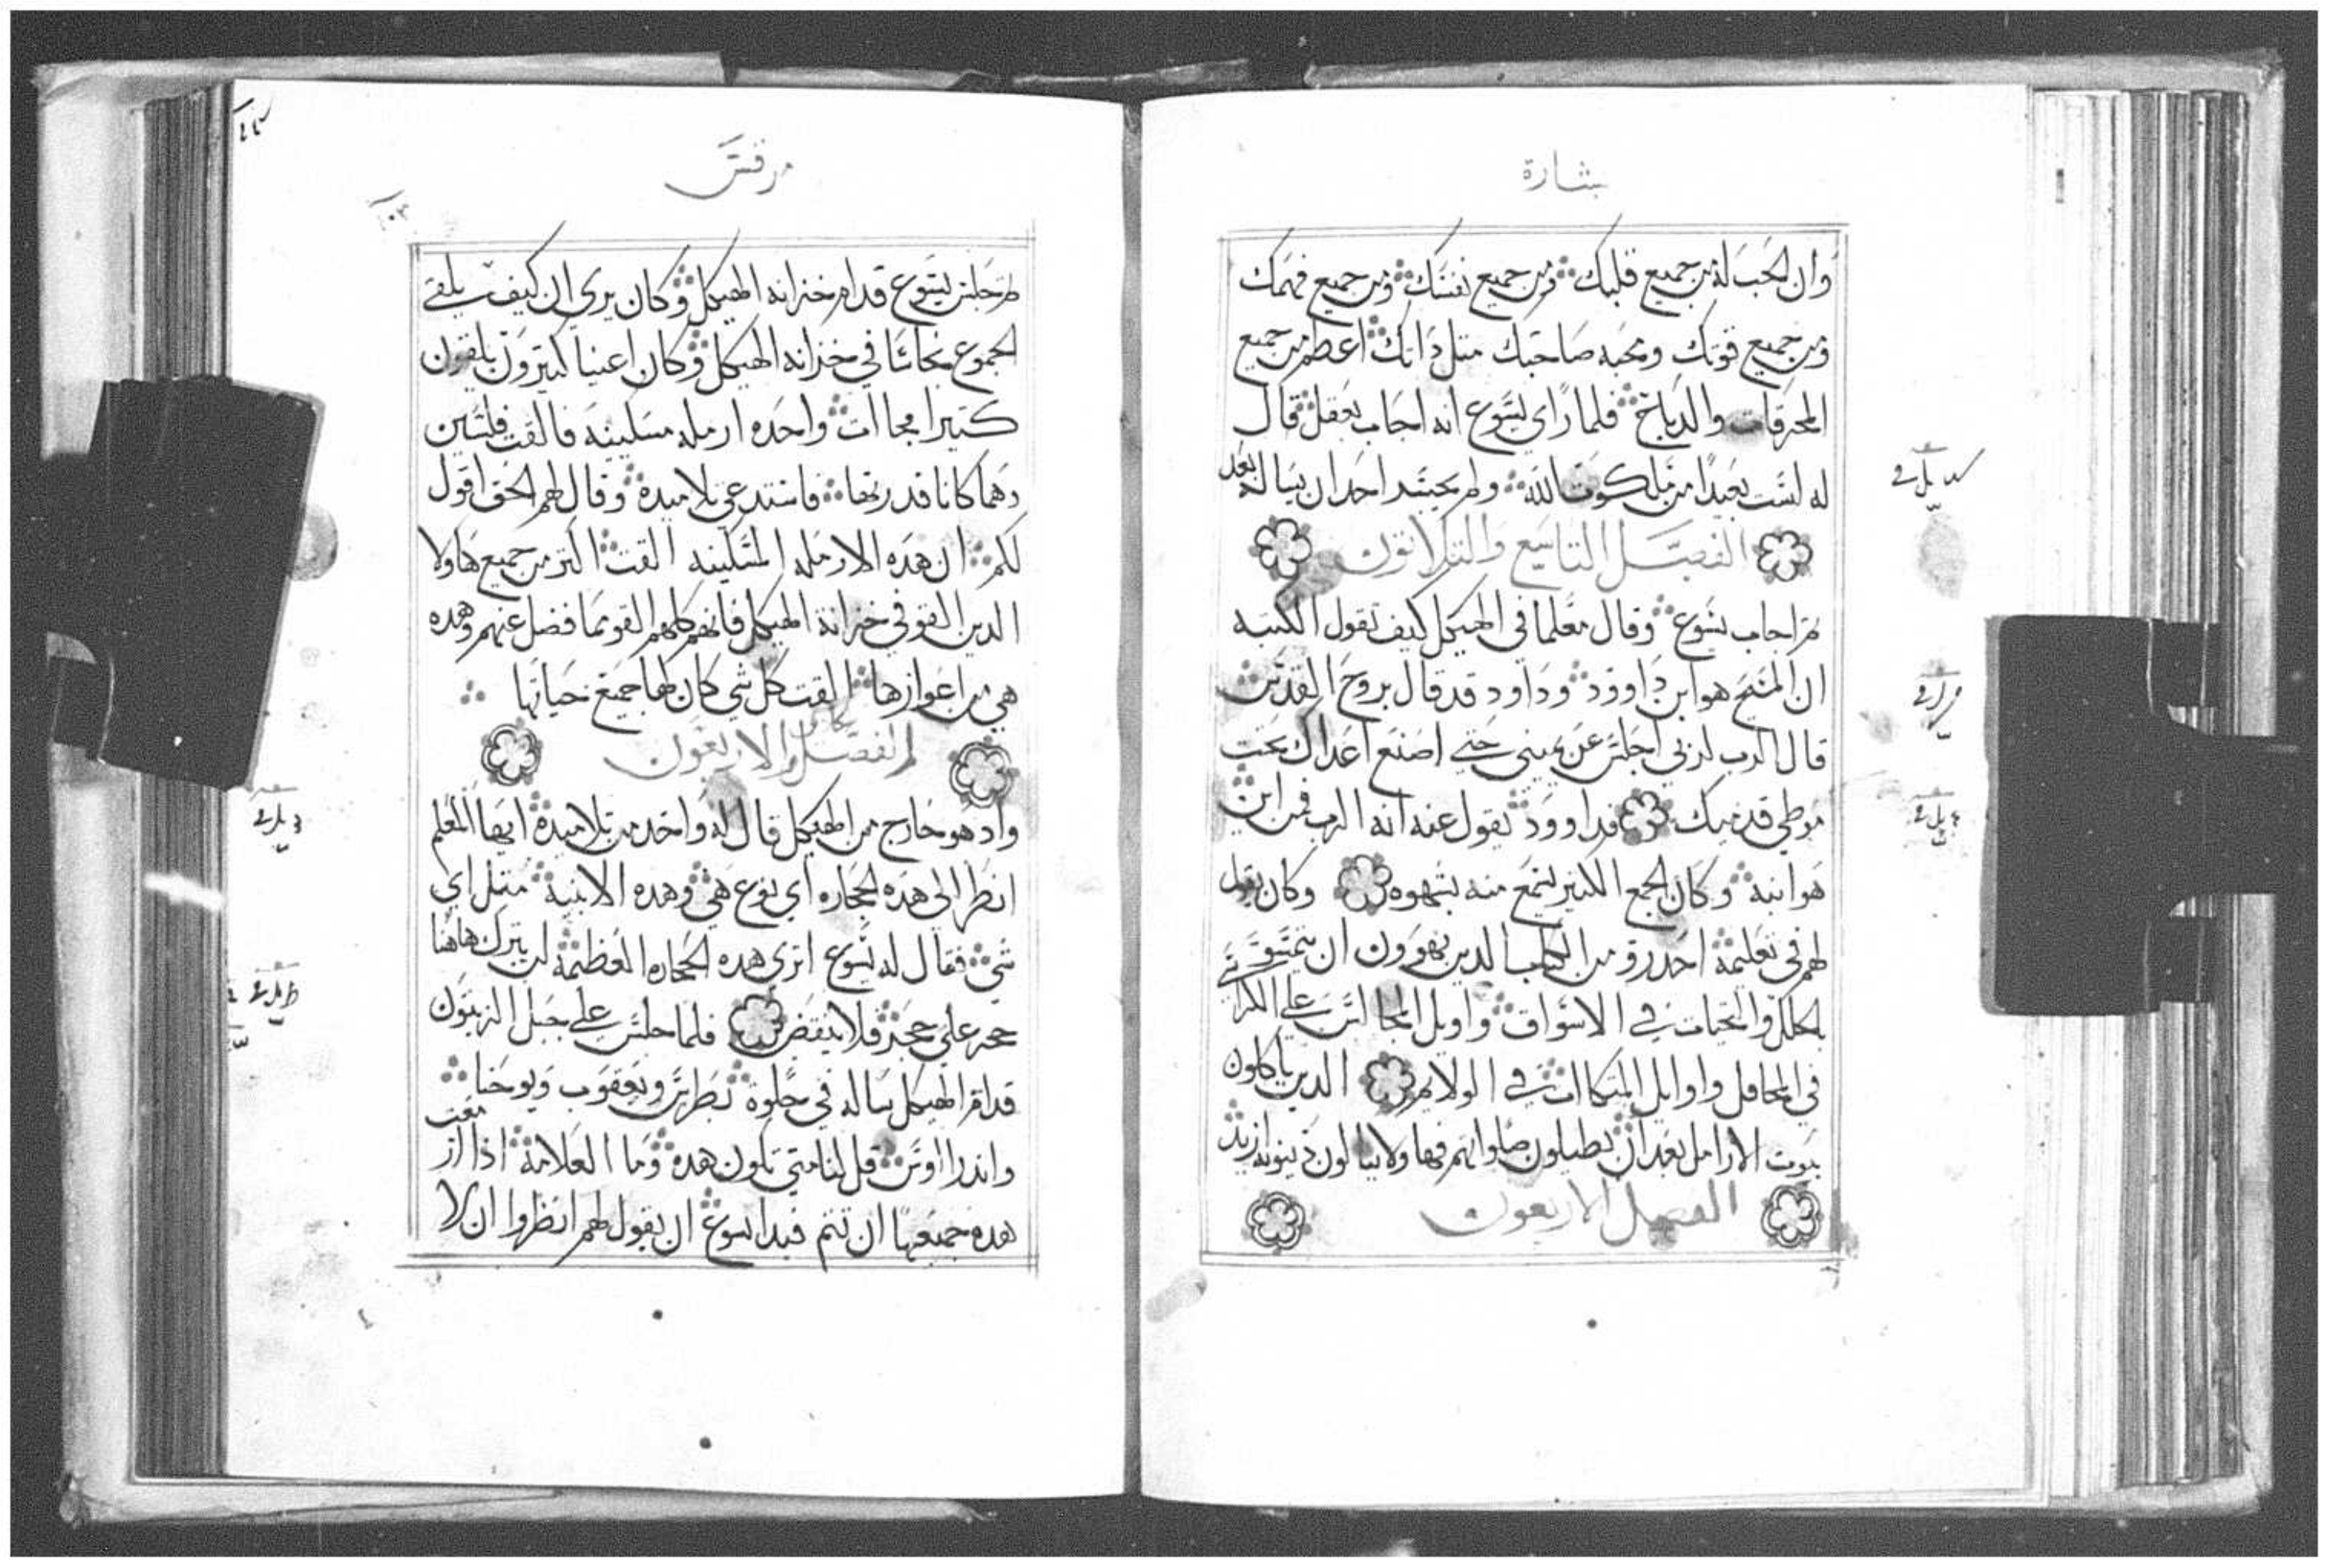 بشارة
وان تحب له من جميع قلبك ومن جميع نفسك ومن جميع فهمك
ومن جميع قوتك ومحبه صاحبك مثل ذاتك اعظم من جميع
المحرقات والدبايح فلما راي يسوع انه اجاب بعقل قال
له لست بعيدا من ملكوت الله ولم يجسد احد ان يساله بعد
الفصل التاسع والتلاتون
تم اجاب يسوع وقال معلما في الهيكل كيف تقول الكتبه
ان المسيح هو ابن داوود وداود قد قال بروح القدس
قال الرب لربي اجلس عن يميني حتي اصنع اعداك تحت
موطي قدميك فداوود يقول عنه انه الرب فمن اين
هو ابنه وكان الجمع الكبير يسمع منه بشهوه وكان يقول
لهم في تعليمه احدرو من الكتاب الدين يهوون ان يتمشو
بالحلل والتحيات في الاسواق واويل المجالس علي الكراسي
في المحافل واوايل المتكاات في الولايم الدين ياكلون
بيوت الارامل بعد ان يطيلون صلواتهم فهاولا ينالون دينونه ازيد
الفصل الاربعون
مرقس
تم جلس يسوع قدام خزانه الهيكل وكان يري ان كيف يلقي
الجموع نحاسا في خزانه الهيكل وكان اغنيا كتيرون يلقون
كتيرا فجاات واحده ارمله مسكينه فالقت فلسين
وهما كانا قدرتها فاستدعي تلاميده وقال لهم الحق اقول
لكم ان هده الارمله المسكينه القت اكتر من جميع هاولا
الدين القو في خزانة الهيكل فانهم كلهم القو مما فضل عنهم وهده
هي من اعوازها القت كل شي كان لها جميع حياتها
الفصل الاربعون
واد هو خارج من الهيكل قال له واحد من تلاميده ايها المعلم
انظر الي هده الحجاره اي نوع هي وهده الابنية متل اي
شي فقال له يسوع اتري هده الحجاره العظيمه لن يترك هاهنا
حجر علي حجر فلا ينقض فلما جلس علي جبل الزيتون
قدام الهيكل ساله في خلوة بطرس ويعقوب ويوحنا
واندراوس قل لنا متي تكون هده وما العلامة اذا ازمعت
هده جميعها ان تتم فبدا يسوع ان يقول لهم انظروا ان لا